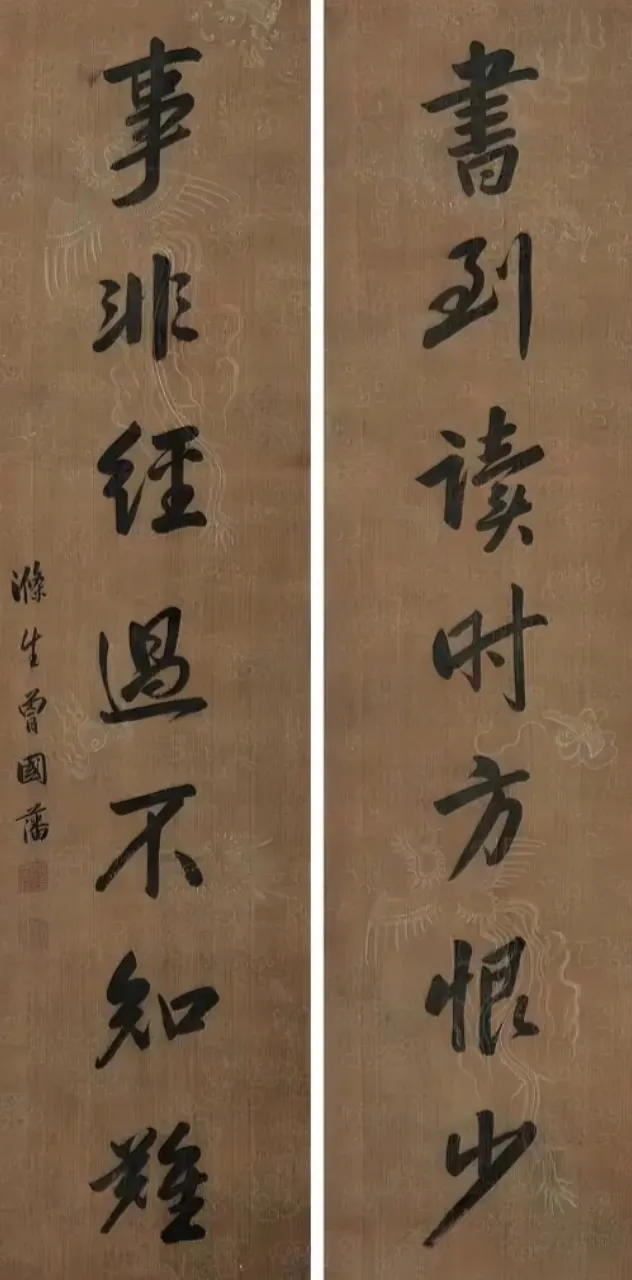 書到读时方恨少
事非經過不知難
滌生曾國藩